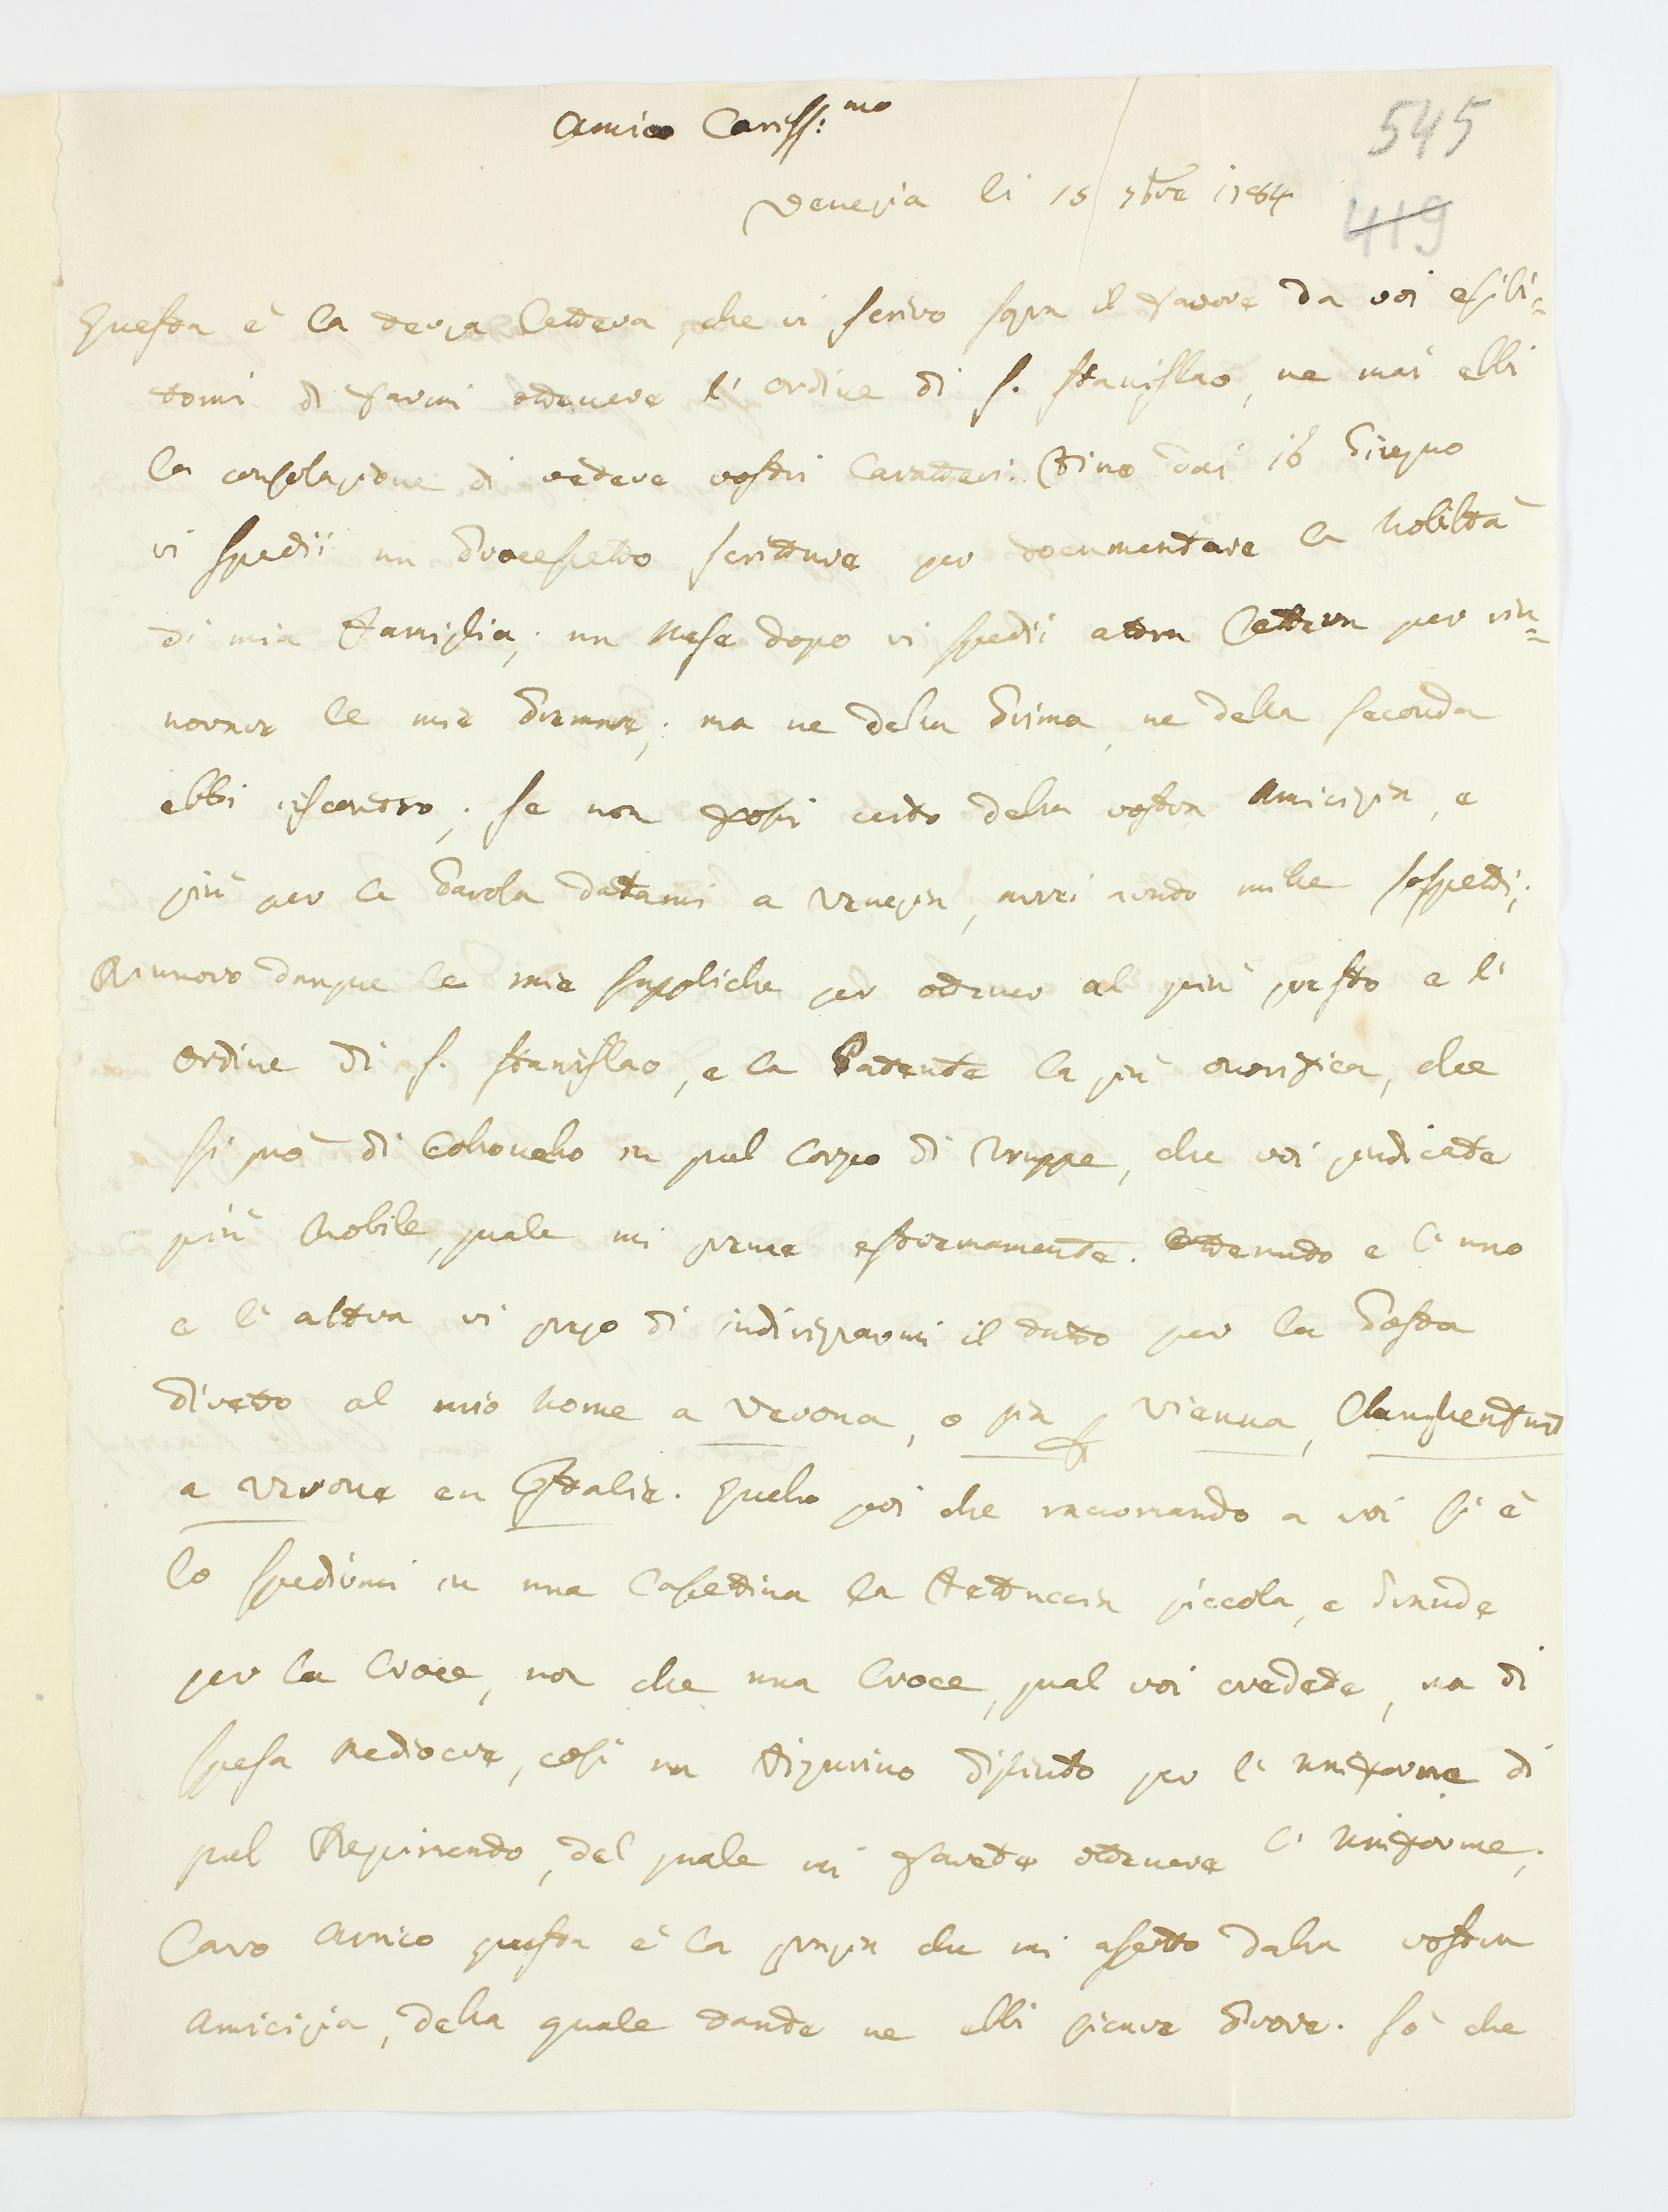 Amico Cariss:mo
545
Venezia li 18 7bre 1784
419
Questa è la terza lettera, che vi scrivo sopra il favore da voi esibi=
tomi di farmi ottenere l'ordine di S. Stanislao, ne mai ebbi
la consolazione di vedere vostri Caratteri: Fino dai 16 Giugno
vi spedii un Processetto scritture per documentare la Nobiltà
di mia Famiglia; un Mese dopo vi spedii altra Lettera per rin=
novare le mie Premure; ma ne della Prima, ne della seconda
ebbi riscontro; se non fossi certo della vostra Amicizia, e
più per la Parola datami a Venezia, avrei avuto mille sospetti;
Rinnovo dunque le mie suppliche per ottener al più presto e l'
ordine di S. Stanislao, e la Patente la più onorifica, che
si può di Colonello in quel Corpo di Truppe, che voi giudicate
più Nobile, quale mi preme estremamente. Ottenuto e l'uno
e l'altra vi prego di indirizzarmi il tutto per la Posta
direto al mio Nome a Verona, o pia Vienna,
a Verone en Ittalie. Quello poi che raccomando a voi si è
lo spedirmi in una Casettina la Fettuccia piccola, e Grande
per la Croce, non che una Croce, qual voi credete, ma di
spesa Mediocre, così un Figurino dipinto per l'uniforme di
quel Regimento, del quale mi farete ottenere l'Uniforme;
Caro Amico questa è la grazia che mi aspetto dalla vostra
Amicizia, della quale tante ne ebbi sicure Prove. Sò che